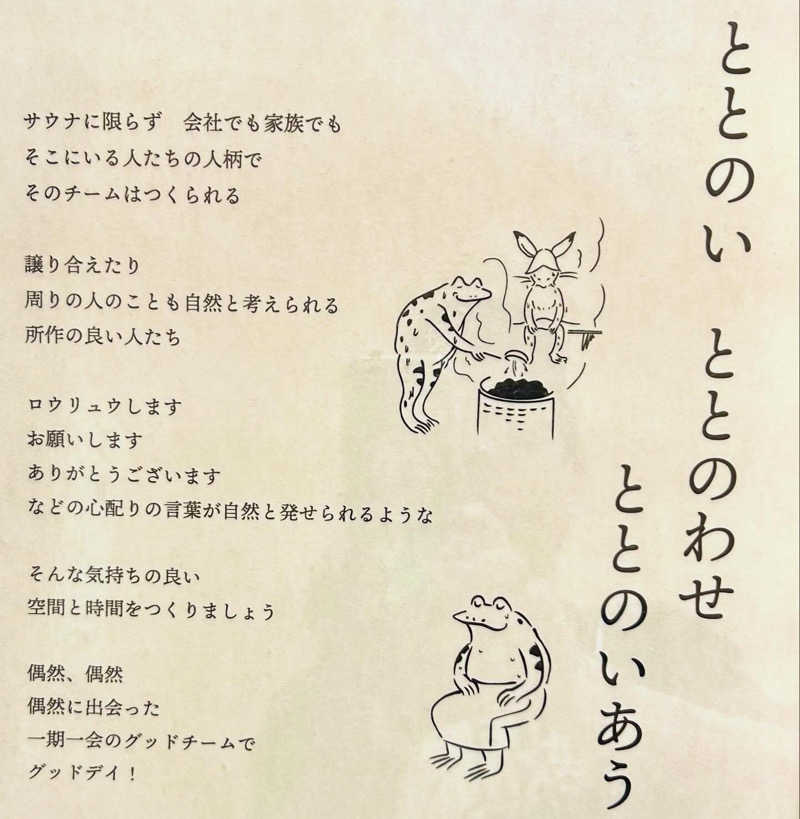 ととのい　ととのわせ
ととのいあう
サウナに限らず　会社でも家族でも
そこにいる人たちの人柄で
そのチームはつくられる
譲り合えたり
周りの人のことも自然と考えられる
所作の良い人たち
ロウリュウします
お願いします
ありがとうございます
などの心配りの言葉が自然と発せられるような
そんな気持ちの良い
空間と時間をつくりましょう
偶然、偶然
偶然に出会った
一期一会のグッドチームで
グッドデイ！